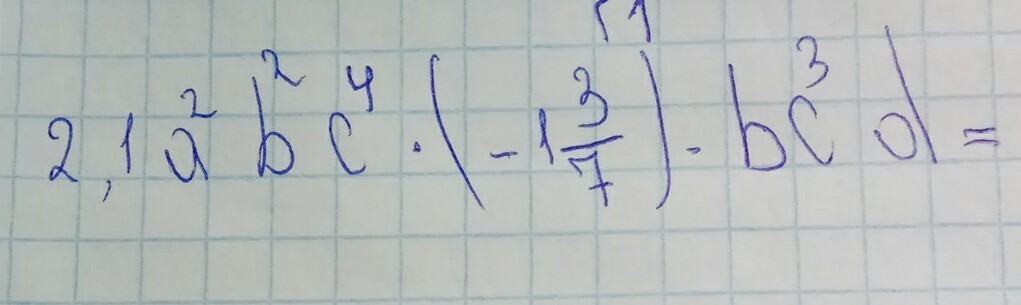 2,1a²b²c⁴ · (-1 3/7) · bc³d =